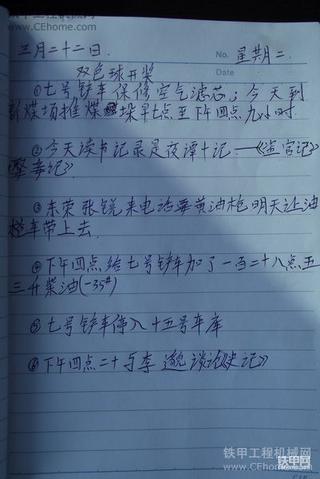 铁甲工程机械网
www.CEhome.com
三月二十二日.
No. 星期二
Date
双色球开奖
①七号铲车保修空气滤芯；今天到
新煤场推煤垛早七点至下午四点九小时.
②今天读书记录是夜谭十记——《盗官记》
③东荣张锐来电话要黄油枪明天让油
枪车带上去.
④下午四点给七号铲车加了一百二十八点五
三升柴油(-35#)
⑤七号铲车停入十五号车库
⑥下午四点二十与李 谈论《史记》
铁甲工程机械网
www.CEhome.com
铁甲网